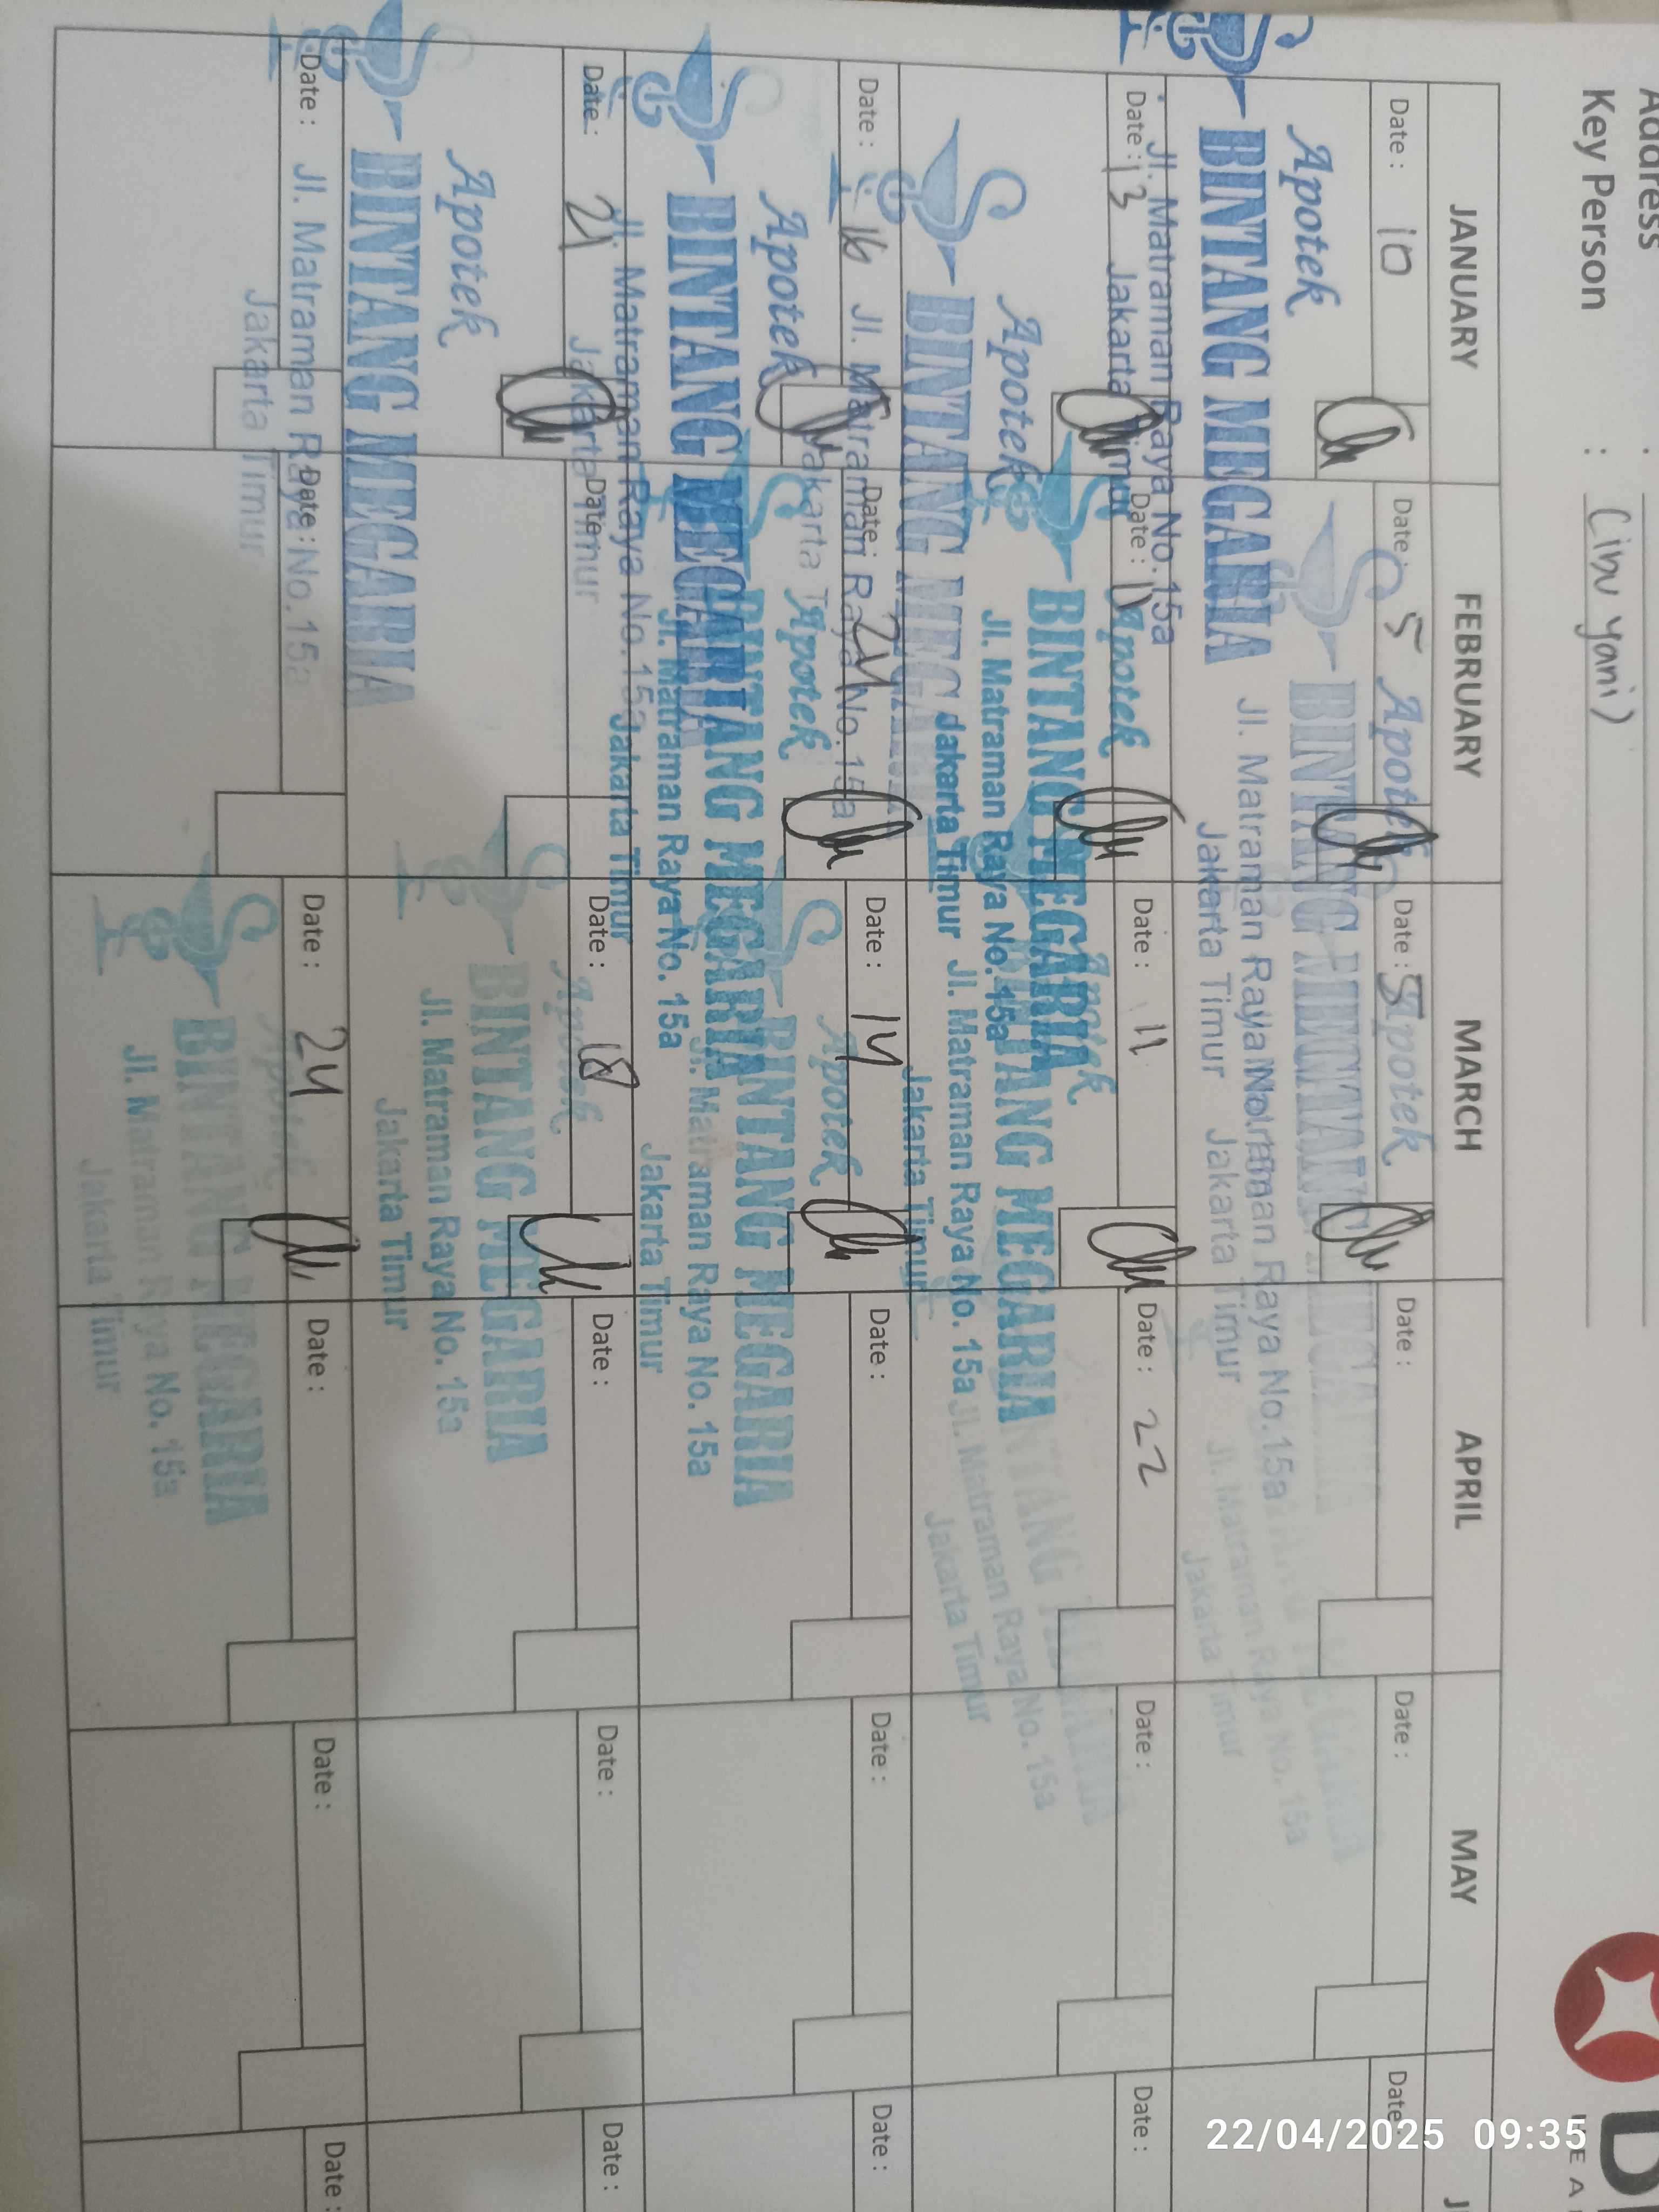 Address :
Key Person : (ibu yani)
JANUARY FEBRUARY MARCH APRIL MAY
Date : 10 Date : 5 Date : 5 Date : Date : Date
Apotek Apotek Apotek
BINTANG MEGARIA
Jl. Matraman Raya No.15a Jl. Matraman Raya No.15a Jl. Matraman Raya No. 15a
Jakarta Timur Jakarta Timur Jakarta Timur
Date : 13 Date : 11 Date : 11 Date : 22 Date : Date :
Apotek Apotek Apotek
BINTANG MEGARIA BINTANG MEGARIA BINTANG MEGARIA
Jl. Matraman Raya No.15a Jl. Matraman Raya No. 15a Jl. Matraman Raya No. 15a Jl. Matraman Raya No. 15a
Jakarta Timur Jakarta Timur Jakarta Timur Jakarta Timur
Date : 16 Date : 24 Date : 14 Date : Date : Date :
Apotek Apotek Apotek
BINTANG MEGARIA BINTANG MEGARIA BINTANG MEGARIA
Jl. Matraman Raya No.15a Jl. Matraman Raya No. 15a Jl. Matraman Raya No. 15a
Jakarta Timur Jakarta Timur Jakarta Timur
Date : 21 Date : Date : 18 Date : Date : Date :
Apotek Apotek
BINTANG MEGARIA BINTANG MEGARIA
Jl. Matraman Raya No.15a Jl. Matraman Raya No. 15a
Jakarta Timur Jakarta Timur
Date : Date : Date : 24 Date : Date : Date :
Apotek
BINTANG MEGARIA
Jl. Matraman Raya No. 15a
Jakarta Timur
22/04/2025 09:35